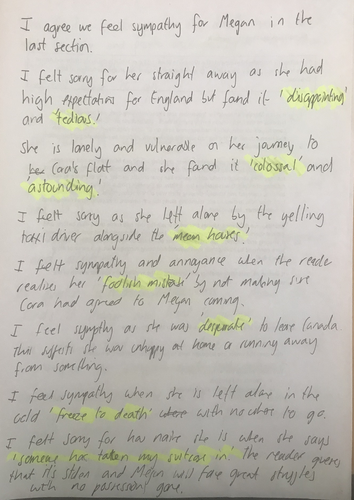 I agree we feel sympathy for Megan in the
last section.
I felt sorry for her straight away as she had
high expectations for England but found it 'disappointing'
and 'tedious.'
She is lonely and vulnerable on her journey to
Cara's flat and she found it 'colossal' and
'astounding.'
I felt sorry as she left alone by the yelling
taxi driver alongside the 'mean houses.'
I felt sympathy and annoyance when the reader
realises her 'foolish mistake' by not making sure
Cara had agreed to Megan coming.
I feel sympathy as she was 'desperate' to leave Canada
This suggests she was unhappy at home or running away
from something.
I feel sympathy when she is left alone in the
cold 'freeze to death' with no where to go.
I felt sorry for how naive she is when she says
'someone has taken my suitcase in.' The reader
that it's stolen and Megan will face great struggles
with no possessions gone.